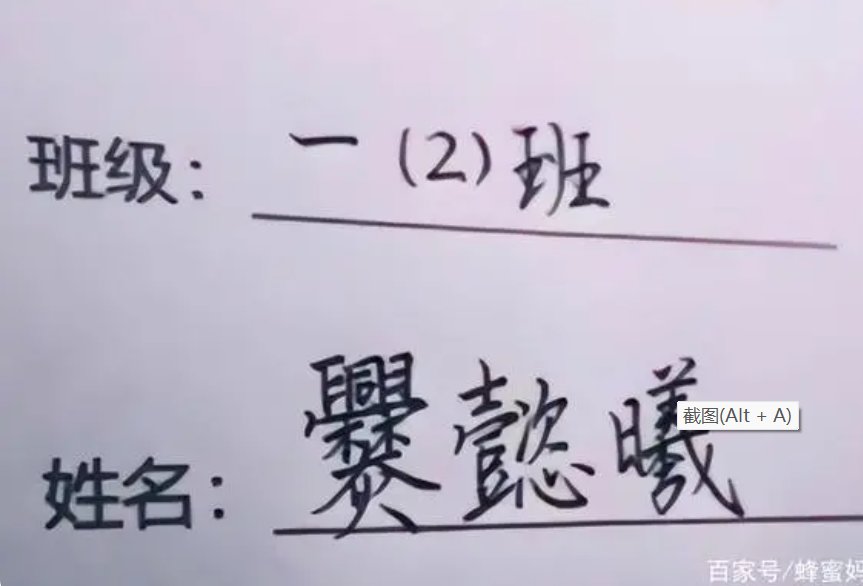 班级： 一 (2) 班
姓名： 爨懿曦
截图(Alt + A)
百家号/蜂蜜妈